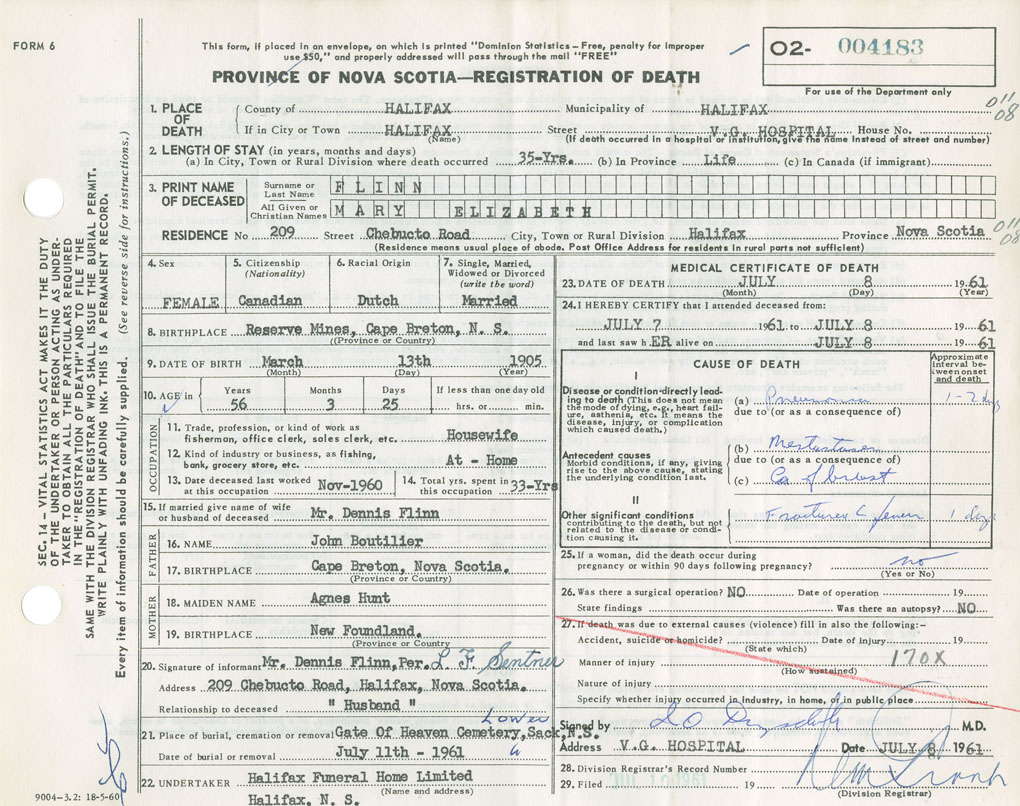 FORM 6
This form, if placed in an envelope, on which is printed "Dominion Statistics – Free, penalty for improper
use $50," and properly addressed will pass through the mail "FREE"
O2- 004183
For use of the Department only
PROVINCE OF NOVA SCOTIA—REGISTRATION OF DEATH
011
08
1. PLACE OF DEATH
County of HALIFAX Municipality of HALIFAX
If in City or Town HALIFAX Street V.G. HOSPITAL House No.
(Name) (If death occurred in a hospital or institution, give the name instead of street and number)
2. LENGTH OF STAY (in years, months and days)
(a) In City, Town or Rural Division where death occurred 35-Yrs. (b) In Province Life (c) In Canada (if immigrant)
3. PRINT NAME OF DECEASED
Surname or Last Name FLINN
All Given or Christian Names MARY ELIZABETH
RESIDENCE No 209 Street Chebucto Road City, Town or Rural Division Halifax Province Nova Scotia
011
08
(Residence means usual place of abode. Post Office Address for residents in rural parts not sufficient)
4. Sex
FEMALE
5. Citizenship
(Nationality)
Canadian
6. Racial Origin
Dutch
7. Single, Married,
Widowed or Divorced
(write the word)
Married
8. BIRTHPLACE Reserve Mines, Cape Breton, N. S.
((Province or Country)
9. DATE OF BIRTH March 13th 1905
(Month) (Day) (Year)
10. AGE in
Years Months Days If less than one day old
56 3 25 hrs. or min.
OCCUPATION
11. Trade, profession, or kind of work as
fisherman, office clerk, sales clerk, etc. Housewife
12. Kind of industry or business, as fishing,
bank, grocery store, etc. At - Home
13. Date deceased last worked
at this occupation Nov-1960
14. Total yrs. spent in
this occupation 33-Yrs
15. If married give name of wife
or husband of deceased Mr. Dennis Flinn
FATHER
16. NAME John Boutilier
17. BIRTHPLACE Cape Breton, Nova Scotia.
(Province or Country)
MOTHER
18. MAIDEN NAME Agnes Hunt
19. BIRTHPLACE New Foundland.
(Province or Country
20. Signature of informant Mr. Dennis Flinn, Per. L F Sentner
Address 209 Chebucto Road, Halifax, Nova Scotia.
Relationship to deceased " Husband "
Lower
21. Place of burial, cremation or removal Gate Of Heaven Cemetery, Sack, N.S.
Date of burial or removal July 11th - 1961
22. UNDERTAKER Halifax Funeral Home Limited
(Name and address)
Halifax, N. S.
9004-3.2: 18-5-60
MEDICAL CERTIFICATE OF DEATH
23. DATE OF DEATH JULY 8 1961
(Month) (Day) (Year)
24. I HEREBY CERTIFY that I attended deceased from:
JULY 7 1961 to JULY 8 1961
and last saw hER alive on JULY 8 1961
CAUSE OF DEATH
Approximate
interval be-
tween onset
and death
I
Disease or condition directly lead-
ing to death (This does not mean
the mode of dying, e.g., heart fail-
ure, asthenia, etc. It means the
disease, injury, or complication
which caused death.)
(a) Pneumonia 1-2 days
due to (or as a consequence of)
Antecedent causes
Morbid conditions, if any, giving
rise to the above cause, stating
the underlying condition last.
(b) Metastases
due to (or as a consequence of)
(c) Ca of breast
II
Other significant conditions
contributing to the death, but not
related to the disease or condi-
tion causing it.
Fractured L femur 1 day
25. If a woman, did the death occur during
pregnancy or within 90 days following pregnancy? no
(Yes or No)
26. Was there a surgical operation? NO Date of operation 19
State findings Was there an autopsy? NO
27. If death was due to external causes (violence) fill in also the following:-
Accident, suicide or homicide? Date of injury 19
(State which)
Manner of injury 170X
(How sustained)
Nature of injury
Specify whether injury occurred in industry, in home, or in public place
Signed by M.D.
Address V.G. HOSPITAL Date JULY 8 1961
28. Division Registrar's Record Number
29. Filed JUL 10 1961 19
(Division Registrar)
SEC. 14 – VITAL STATISTICS ACT MAKES IT THE DUTY
OF THE UNDERTAKER OR PERSON ACTING AS UNDER-
TAKER TO OBTAIN ALL THE PARTICULARS REQUIRED
IN THE "REGISTRATION OF DEATH" AND TO FILE THE
SAME WITH THE DIVISION REGISTRAR WHO SHALL ISSUE THE BURIAL PERMIT.
WRITE PLAINLY WITH UNFADING INK. THIS IS A PERMANENT RECORD.
Every item of information should be carefully supplied. (See reverse side for instructions.)